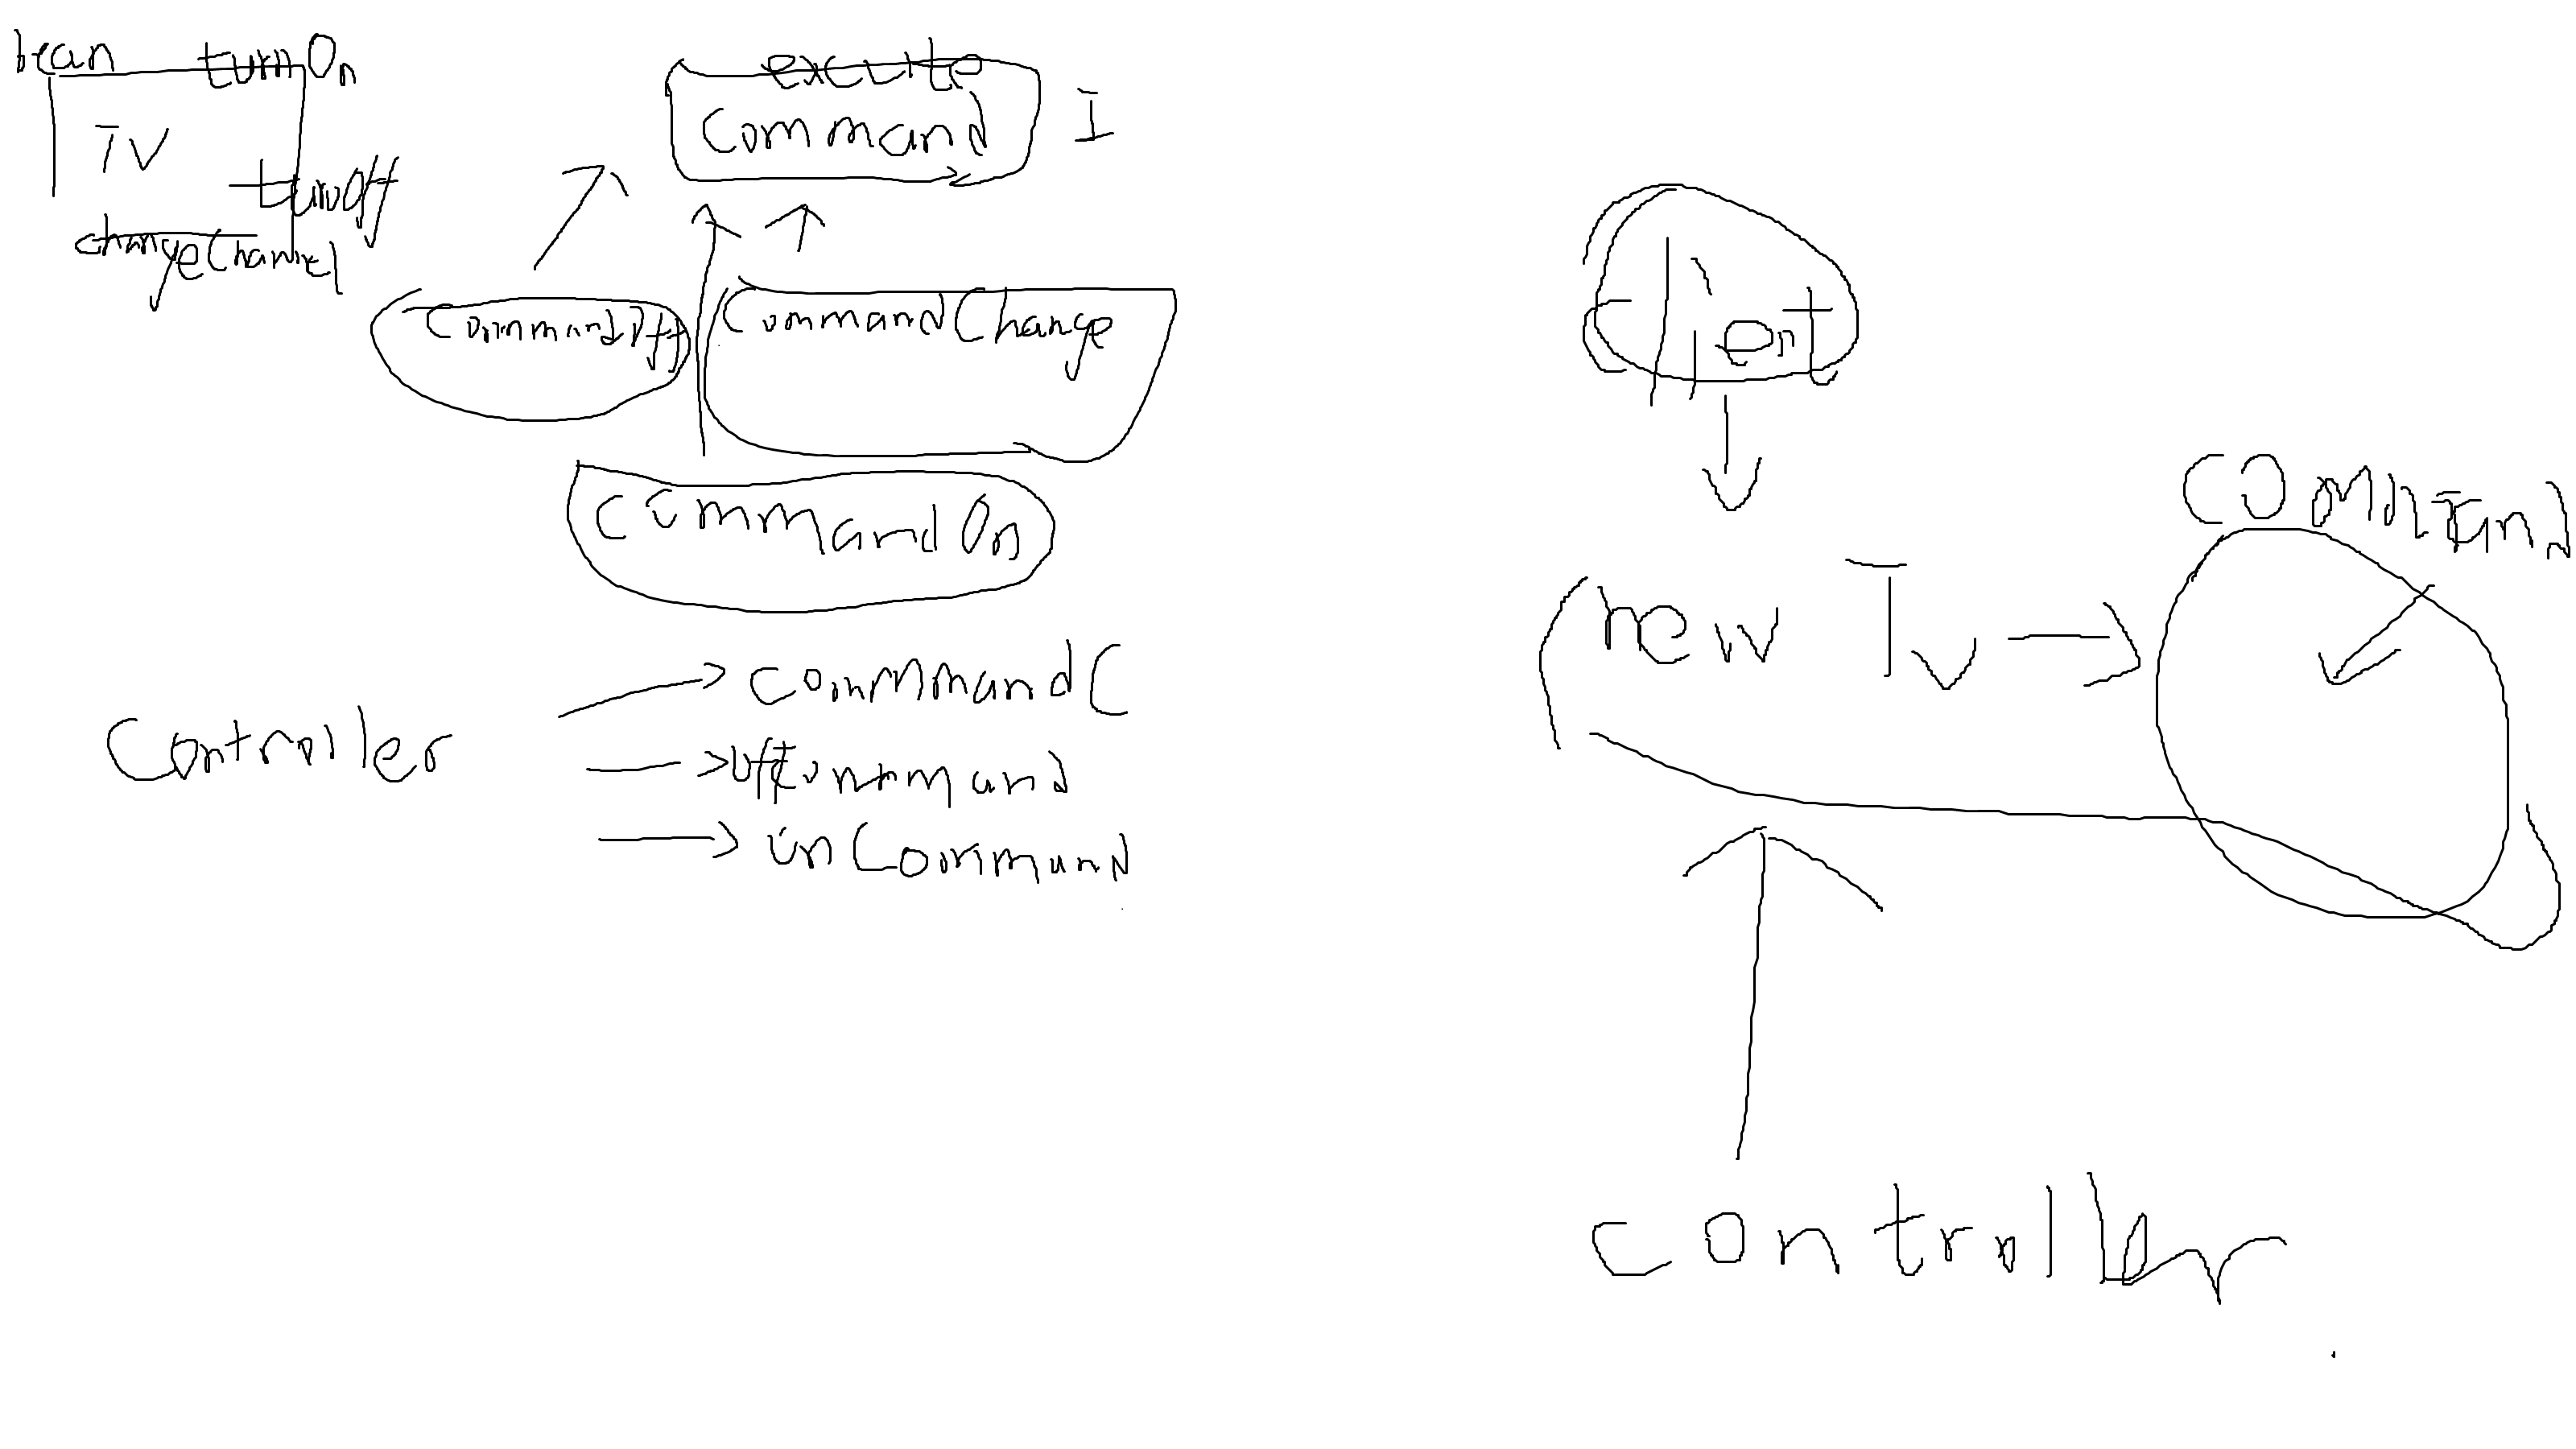 bean turnOn
TV
turnoff
changeChannel
execute
Command I
CommandOff
CommandChange
CommandOn
Controller
CommandC
offCommand
onCommand
Client
new TV
COMMand
controller